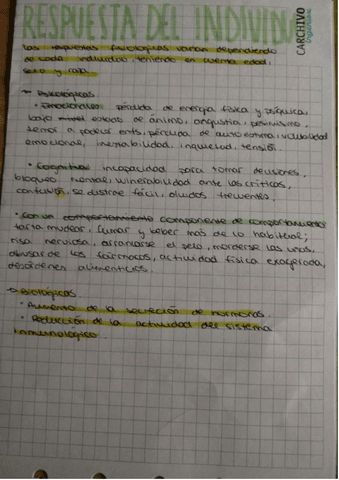 RESPUESTA DEL INDIVIDUO
CARCHIVO
las respuestas fisiológicas varian dependiendo
de cada individuo, teniendo en cuenta edad,
sexo y raza.
→ Psicológicas
• Emocionales: pérdida de energía física y psíquica,
bajo estado de ánimo, angustia, pesimismo,
temor a padecer enfs, pérdida de autoestima, volubilidad
emocional, irritabilidad, inquietud, tensión.
• Cognitivas: incapacidad para tomar decisiones,
bloqueo mental, vulnerabilidad ante las críticas,
confusión, se distrae fácil, olvidos frecuentes.
• Con un comportamiento componente de comportamiento:
tartamudear, fumar y beber más de lo habitual,
risa nerviosa, arrancarse el pelo, morderse las uñas,
abusar de los fármacos, actividad física exagerada,
desórdenes alimenticios.
→ Fisiológicas:
• Aumento de la secreción de hormonas.
• Reducción de la actividad del sistema
inmunológico.